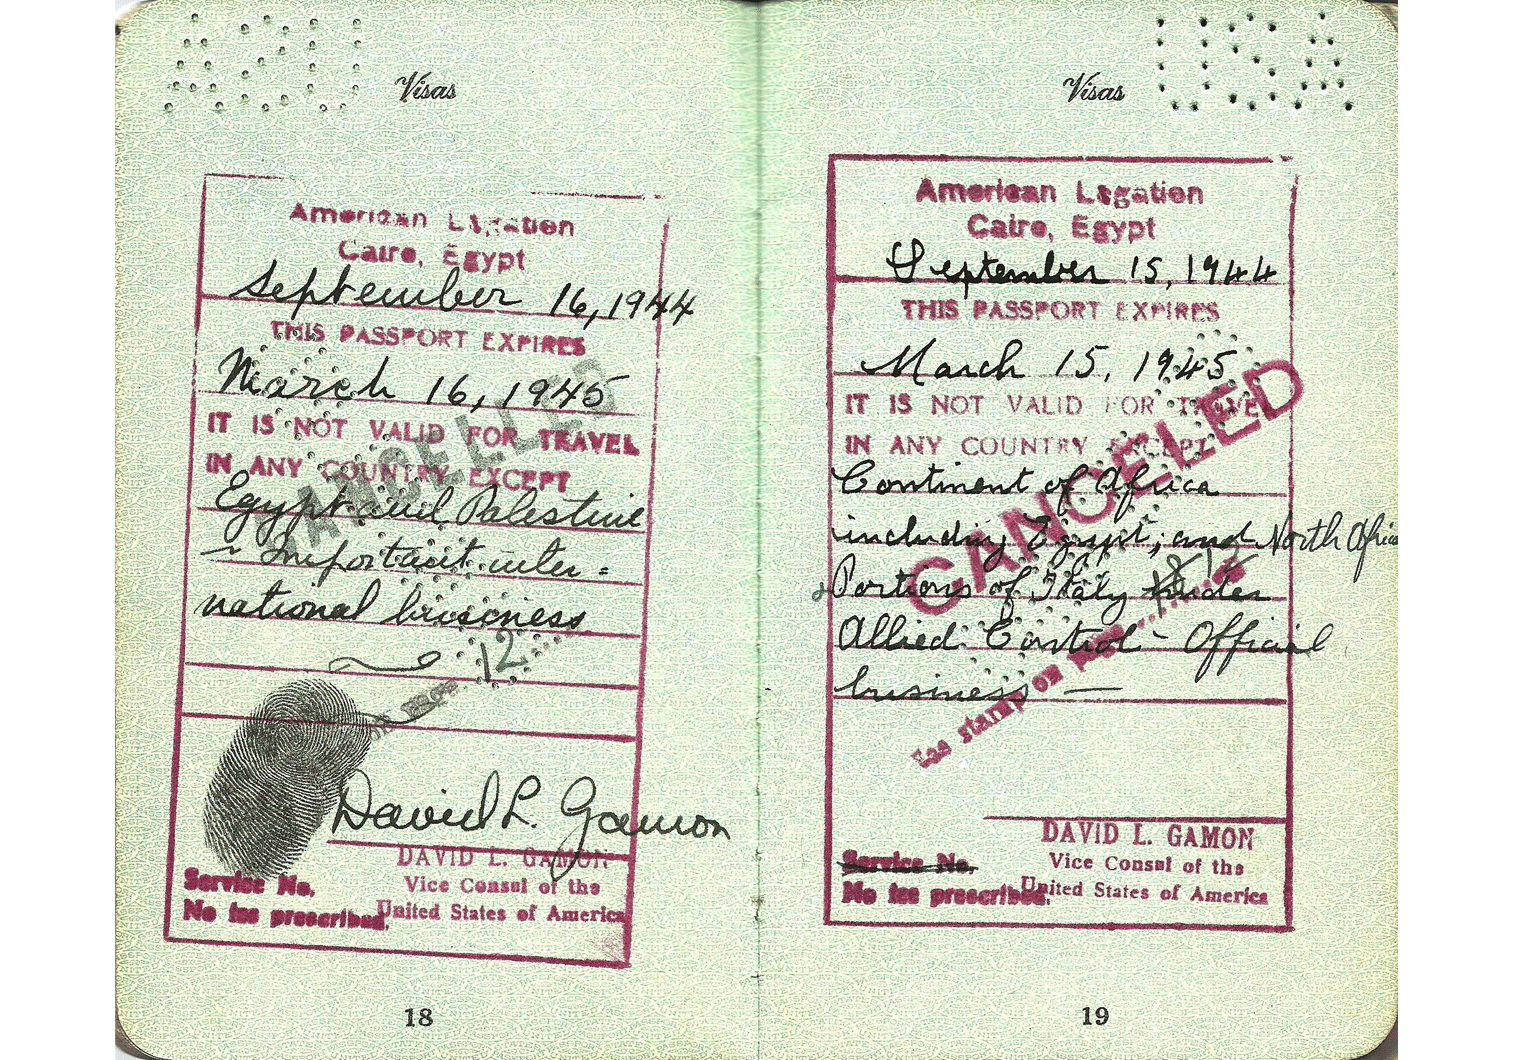 Visas
American Legation
Cairo, Egypt
September 16, 1944
THIS PASSPORT EXPIRES
March 16, 1945
IT IS NOT VALID FOR TRAVEL
IN ANY COUNTRY EXCEPT
Egypt and Palestine
~ Important inter=
national business
CANCELLED
12
David L. Gamon
DAVID L. GAMON
Vice Consul of the
United States of America
Service No.
No fee prescribed.
18
Visas
USA
American Legation
Cairo, Egypt
September 15, 1944
THIS PASSPORT EXPIRES
March 15, 1945
IT IS NOT VALID FOR TRAVEL
IN ANY COUNTRY EXCEPT
Continent of Africa
including Egypt, and North Africa
Portions of Italy under
Allied Control - Official
business —
CANCELED
See stamp on page
DAVID L. GAMON
Vice Consul of the
United States of America
Service No.
No fee prescribed.
19